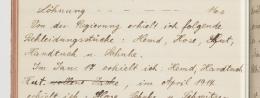 Löhnung
Von der Regierung erhielt ich folgende
Bekleidungsstücke: Hemd, Hose, Hut,
Handtuch u. Schuhe.
Im Jan. 17 erhielt ich: Hemd, Handtuch
Hut, im April 1914
erhielt ich: Hose, Schuhe u.